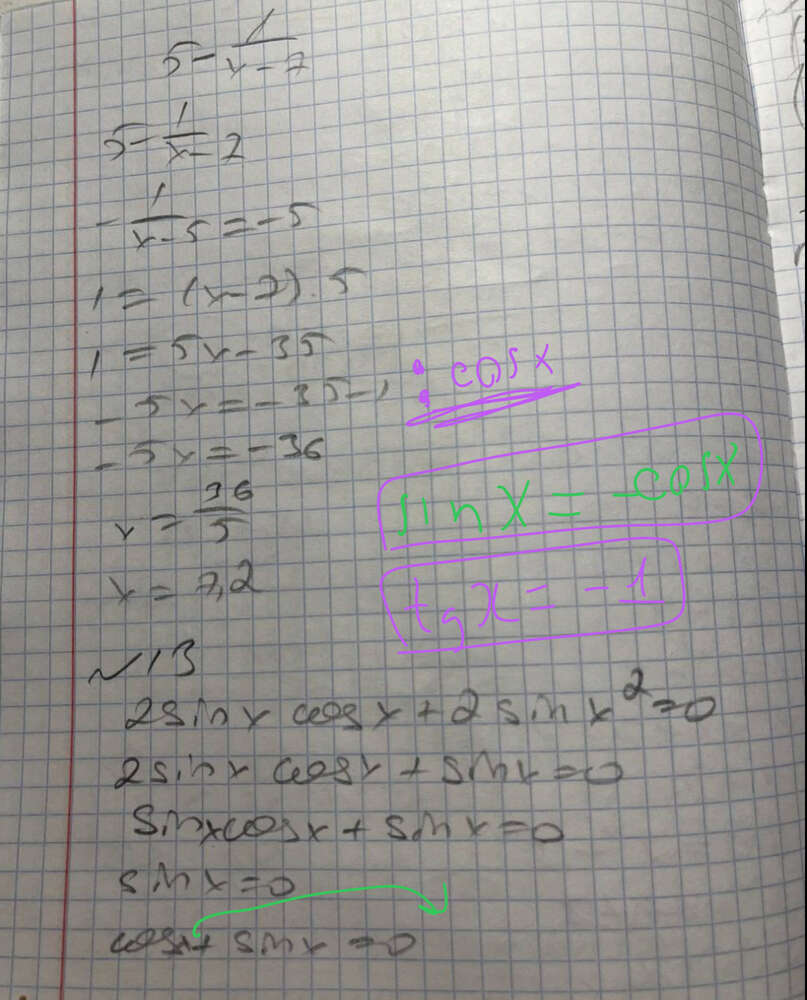 5 - 1/(x-7)
5 - 1/x - 7
- 1/(x-5) = -5
1 = (x-7).5
1 = 5x - 35
- 5x = -35-1
- 5x = -36
x = 36/5
x = 7,2
: cosx
sinx = -cosx
tgx = -1
~13
2sinx cosx + 2 sinx² = 0
2sinx cosx + sinx = 0
sinxcosx + sinx = 0
sinx = 0
cosx + sinx = 0